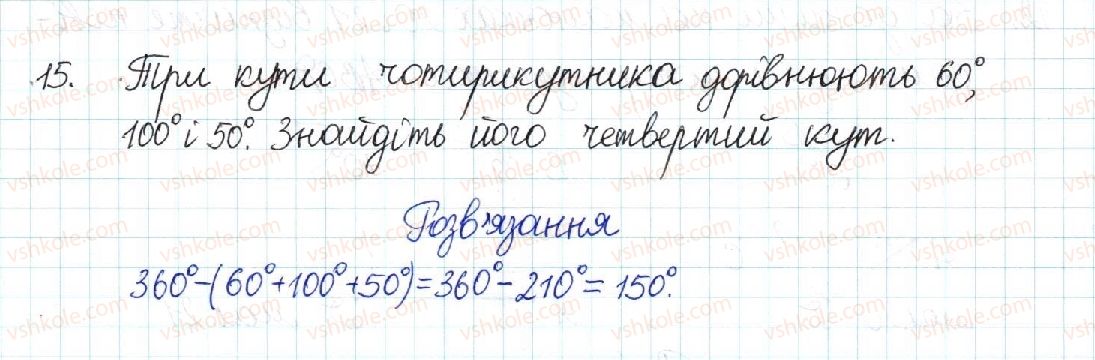 15. Три кути чотирикутника дорівнюють 60°,
100° і 50°. Знайдіть його четвертий кут.
Розв'язання
360°-(60°+100°+50°)=360°-210°=150°.